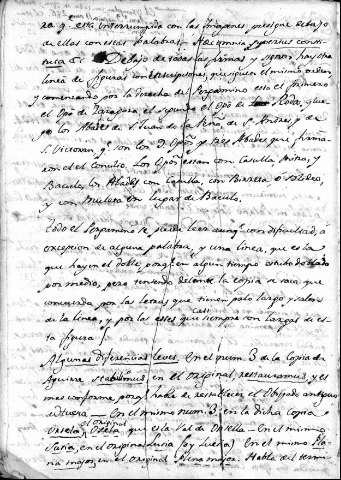 esta interrumpida con las Imagenes puesque debajo
de ellas con estas palabras: Hæc omnia superius consti-
tuta &c. Debajo de todas las firmas y signos hay otra
linea de figuras con inscripciones, que siguen el mismo orden
y comenzando por la derecha del Pergamino esta el primero
el Opo de Zaragoza, el Opo de Roda, que
los Abades de S. Juan de la Peña, de S. Andres, y de
S. Victorian, y son los Opos y tres Abades que firma-
ron el Concilio. Los Opos estan con Casulla, Mitra, y
Baculo, los Abades con Casulla, con Birreta, o Solideo,
y con Muleta en lugar de Baculo.
Todo el Pergamino se puede leer aunq. con dificultad, a
excepcion de alguna palabra, y una linea, que es la
que hay en el doble porq. en algun tiempo estubo doblado
por medio, pero teniendo delante la copia se saca que
concuerda por las letras que tienen palo largo y salen
de la linea, y por las eses que siempre son largas de es-
ta figura ſ.
Algunas diferencias leves. En el num. 3 de la Copia de
Aguirre stabilimus en el original restauramus, y es
mas conforme porq. habla de restablecer el Obispado antiguo
En el mismo num. 3 en la dicha copia
el original que esta Val de
en el original En el mismo
major en el original major. Habla del termi-